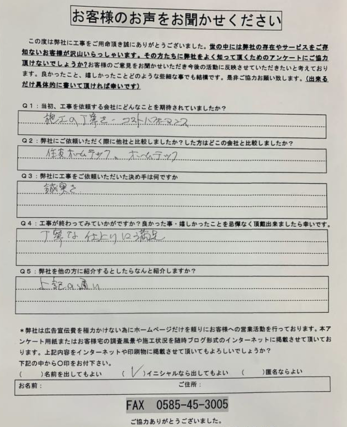 お客様のお声をお聞かせください
この度は弊社に工事をご用命頂き誠にありがとうございました。世の中には弊社の存在やサービスをご存
知ないお客様が沢山いらっしゃいます。その方たちに弊社をよく知って頂くためのアンケートにご協力
頂けないでしょうか?お客様のご意見をお聞かせいただき今後の活動に反映させていただきたいと考えてお
ります。良かったこと、嬉しかったことどのような些細な事でも結構です。是非ご協力お願い致します。(出来るだ
け具体的に書いて頂ければ幸いです)
Q1:当初、工事を依頼する会社にどんなことを期待されていましたか?
施工の丁寧さ・コストパフォーマンス
Q2:弊社にご依頼いただく際に他社と比較しましたか?した方はどこの会社と比較しましたか?
住友ホームテック、ホームテック
Q3:弊社に工事をご依頼いただいた決め手は何ですか
誠実さ
Q4:工事が終わってみていかがですか?良かった事・嬉しかったことを忌憚なく頂戴出来ましたら幸いです。
丁寧な仕上りに満足
Q5:弊社を他の方に紹介するとしたらなんと紹介しますか?
上記の通り
*弊社は広告宣伝費を極力かけない為にホームページだけを頼りにお客様への営業活動を行っております。本ア
ンケート用紙またはお客様宅の調査風景や施工状況を随時ブログ形式のインターネットに掲載させて頂いてお
ります。上記内容をインターネットや印刷物に掲載させて頂いてもよろしいでしょうか?
下記の中から〇印をお付下さい。
( )名前を出してもよい (✓)イニシャルなら出してもよい ( )匿名ならよい
お名前: ご住所:
FAX 0585-45-3005
ご協力ありがとうございました。